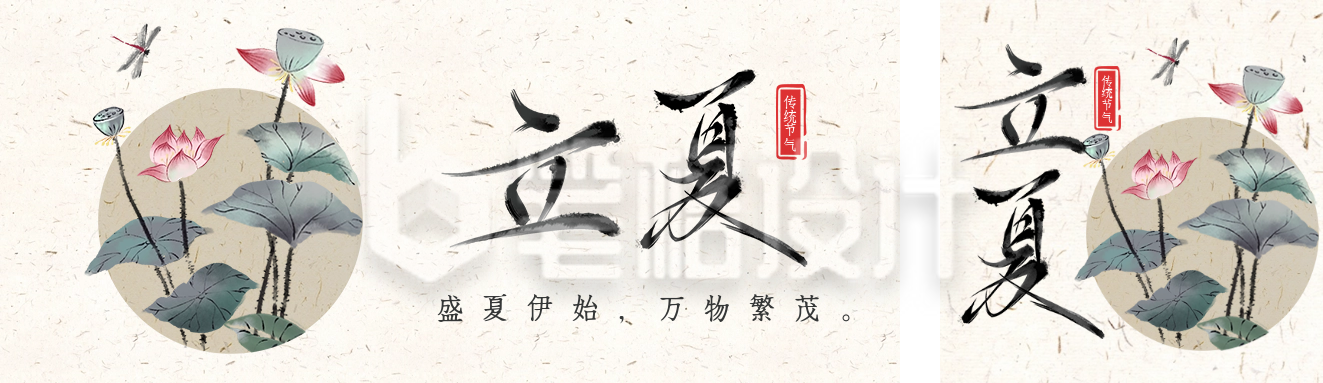 立夏
传统节气
盛夏伊始，万物繁茂。
笔格设计
立夏
传统节气